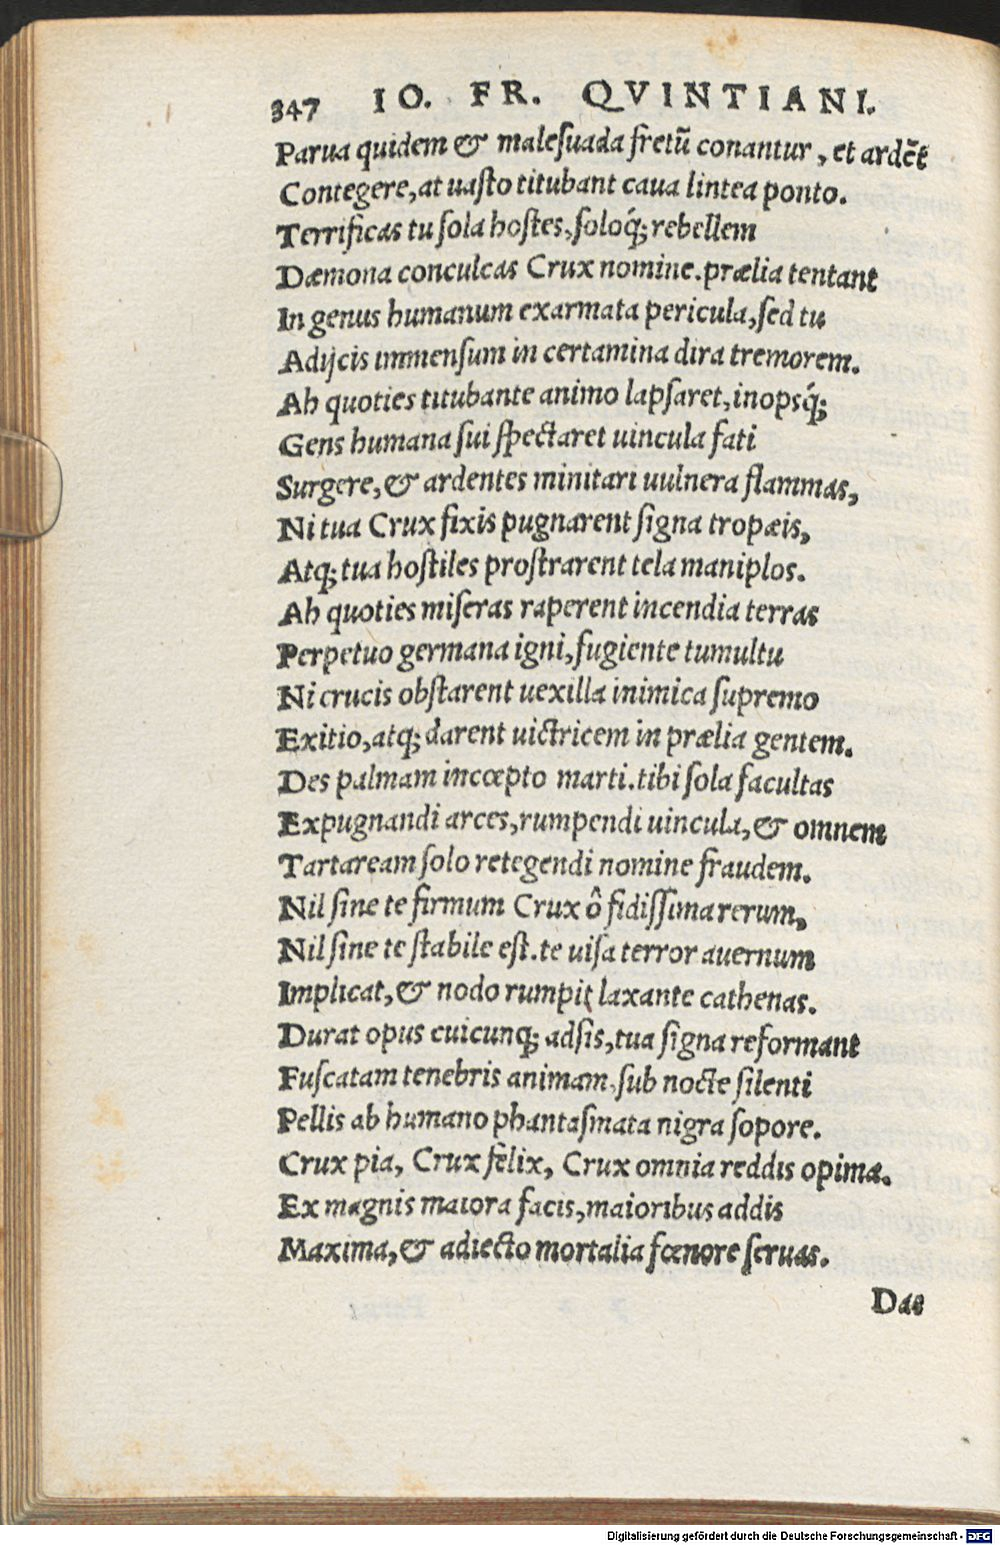 347 IO. FR. QVINTIANI.
Parua quidem & malesuada fretū conantur, et ardēt
Contegere, at uasto titubant caua lintea ponto.
Terrificas tu sola hostes, soloq́; rebellem
Dæmona conculcas Crux nomine. prælia tentant
In genus humanum exarmata pericula, sed tu
Adijcis immensum in certamina dira tremorem.
Ah quoties titubante animo lapsaret, inopsq́;
Gens humana sui spectaret uincula fati
Surgere, & ardentes minitari uulnera flammas,
Ni tua Crux fixis pugnarent signa tropæis,
Atq; tua hostiles prostrarent tela maniplos.
Ah quoties miseras raperent incendia terras
Perpetuo germana igni, fugiente tumultu
Ni crucis obstarent uexilla inimica supremo
Exitio, atq; darent uictricem in prælia gentem.
Des palmam incœpto marti. tibi sola facultas
Expugnandi arces, rumpendi uincula, & omnem
Tartaream solo retegendi nomine fraudem.
Nil sine te firmum Crux ô fidissima rerum,
Nil sine te stabile est. te uisa terror auernum
Implicat, & nodo rumpit laxante cathenas.
Durat opus cuicunq; adsis, tua signa reformant
Fuscatam tenebris animam, sub nocte silenti
Pellis ab humano phantasmata nigra sopore.
Crux pia, Crux fèlix, Crux omnia reddis opima.
Ex magnis maiora facis, maioribus addis
Maxima, & adiecto mortalia fœnore seruas.
Dae
Digitalisierung gefördert durch die Deutsche Forschungsgemeinschaft - DFG